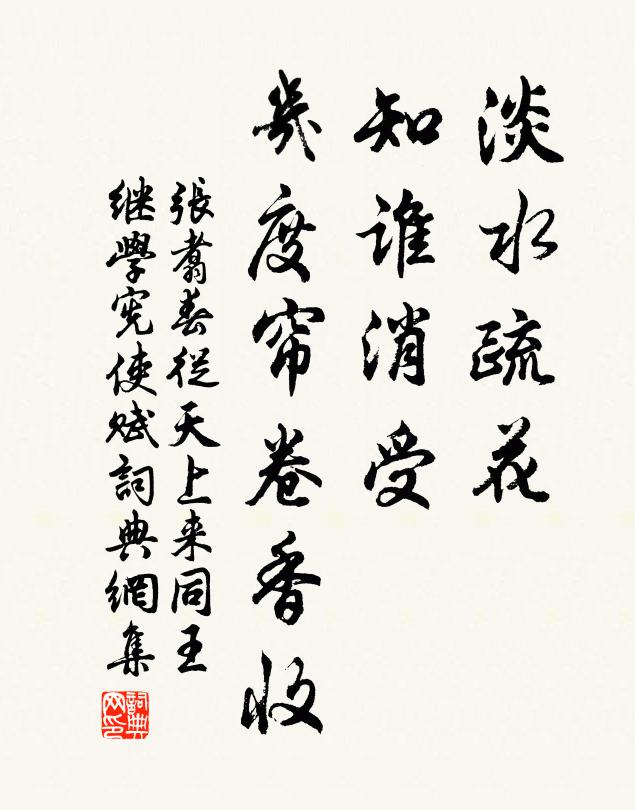 淡水疏花
知谁消受
几度帘卷香收
張翥春從天上来同王
继學宪使赋詞典網集
詞典網印